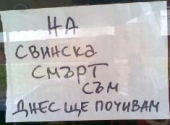 НА
СВИНСКА
СМЪРТ
СЪМ
ДНЕС ЩЕ ПОЧИВАМ